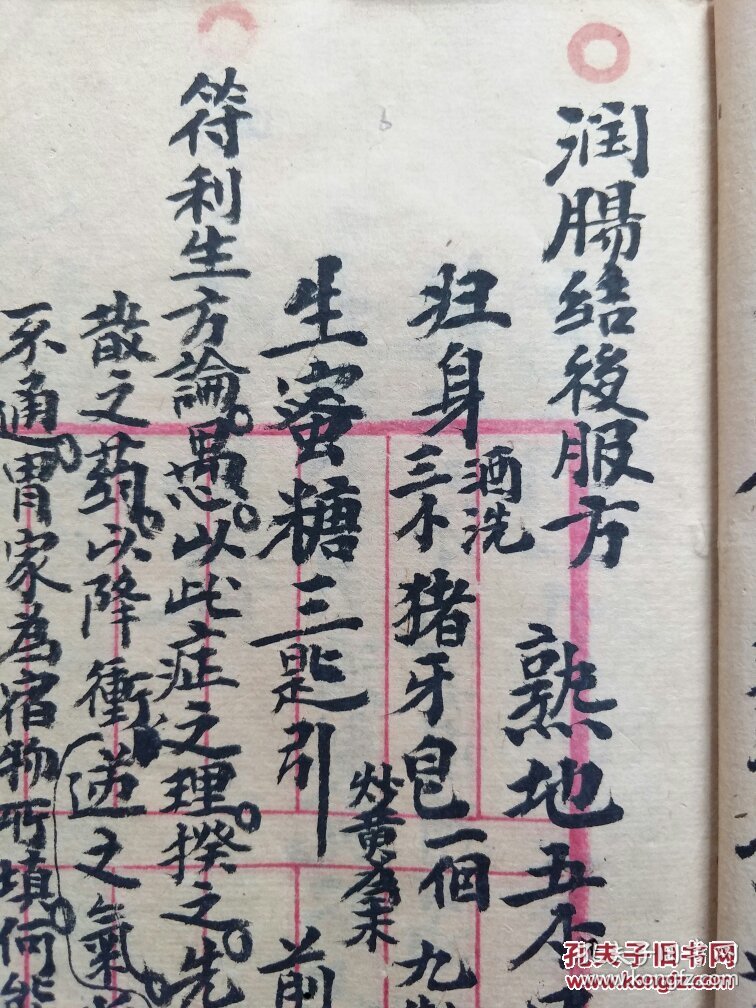 润腸结後服方
熟地五
归身
酒洗
三
猪牙皂一個
炒黄為末
九
生蜜糖三匙引
前
符利生方論。愚忍以此症之理。揆之。先
散之药。以降衝逆之氣。
不通。胃家為宿物所填。何能
孔夫子旧书网
www.kongfz.com